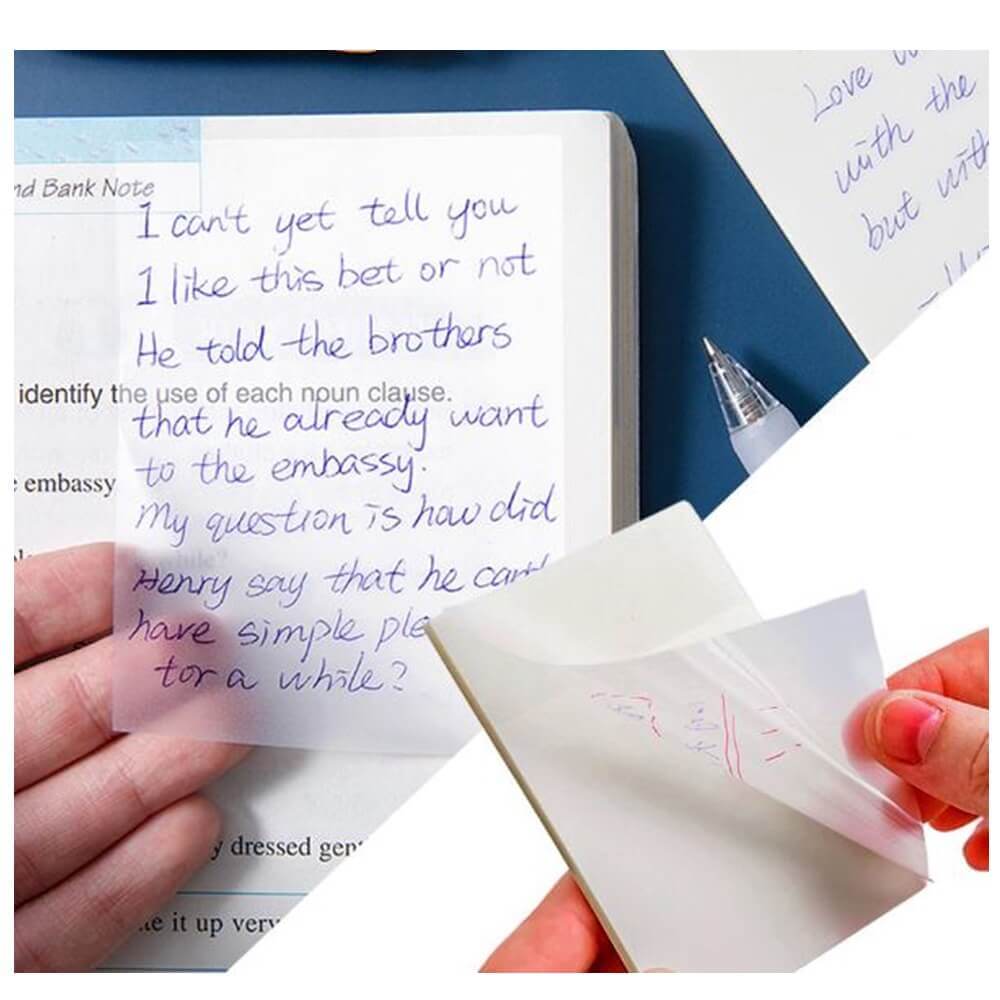 nd Bank Note
I can't yet tell you
I like this bet or not
He told the brothers
identify the use of each noun clause.
that he already want
to the embassy.
embassy
My question is how did
Henry say that he can't
have simple
for a while?
y dressed
it up very
Love
with the
but with